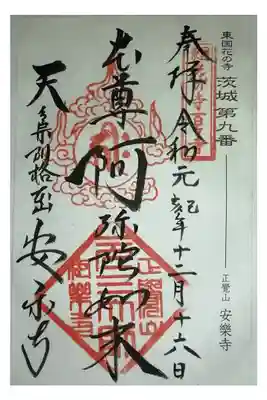 東国花の寺 茨城 第九番 正覺山 安樂寺
奉拝 令和元己亥年十二月十六日
本尊 阿弥陀如来
安楽寺
正覺山